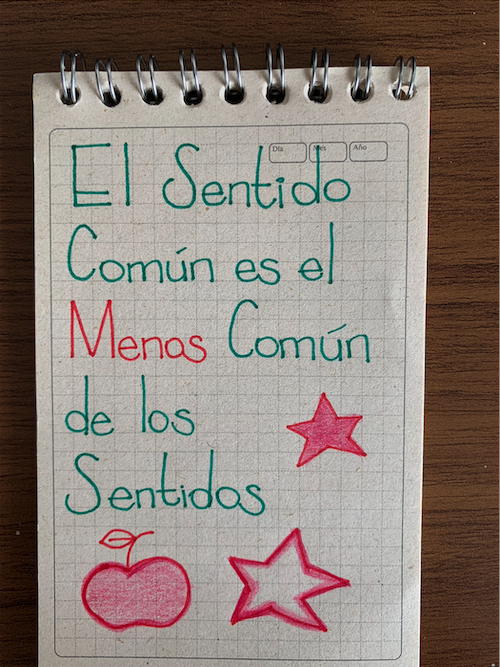 Día Mes Año
El Sentido
Común es el
Menos Común
de los
Sentidos